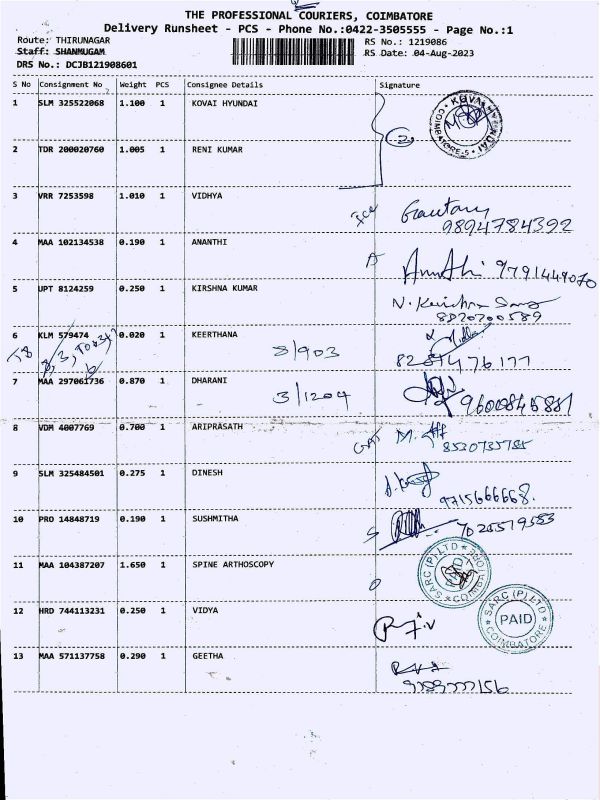 THE PROFESSIONAL COURIERS, COIMBATORE
Delivery Runsheet - PCS - Phone No.:0422-3505555 - Page No.:1
Route: THIRUNAGAR
RS No.: 1219086
Staff: SHANMUGAM
RS Date: 04-Aug-2023
DRS No.: DCJB121908601
S No Consignment No Weight PCS Consignee Details Signature
1 SLM 325522068 1.100 1 KOVAI HYUNDAI
2 TDR 200020760 1.005 1 RENI KUMAR
3 VRR 7253598 1.010 1 VIDHYA
Gautam
9894784392
4 MAA 102134538 0.190 1 ANANTHI
Ananthi 9791449070
5 UPT 8124259 0.250 1 KIRSHNA KUMAR
8220200589
6 KLM 579474 0.020 1 KEERTHANA
8/903
7 MAA 297061736 0.870 1 DHARANI
3/1204
8 VDM 4007769 0.700 1 ARIPRASATH
8530735785
9 SLM 325484501 0.275 1 DINESH
9715666668.
10 PRO 14848719 0.190 1 SUSHMITHA
7025519553
11 MAA 104387207 1.650 1 SPINE ARTHOSCOPY
SARC (P) LTD
COIMBATORE
12 HRD 744113231 0.250 1 VIDYA
SARC (P) LTD
PAID
COIMBATORE
13 MAA 571137758 0.290 1 GEETHA